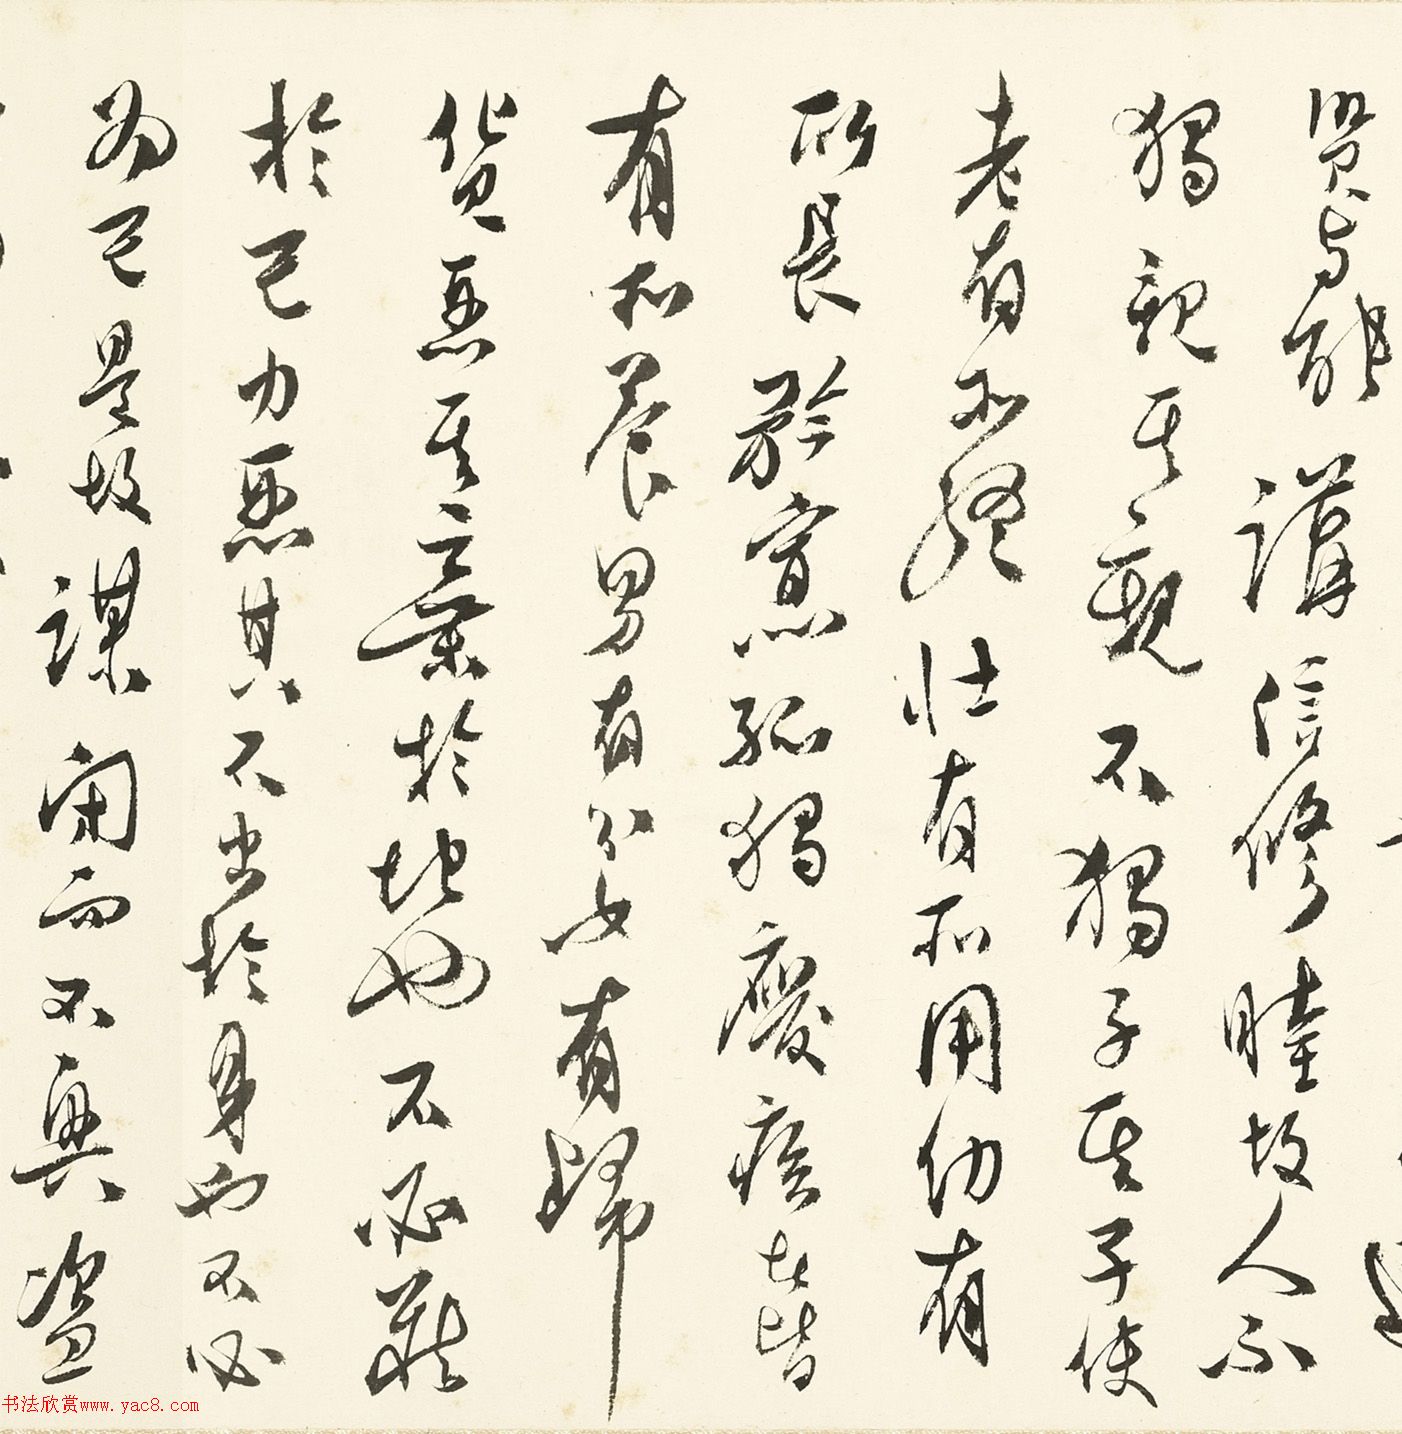 賢与能講信修睦故人不
獨親其親不獨子其子使
老有所終壯有所用幼有
所長矜寡孤獨廢疾者皆
有所養男有分女有歸
貨惡其棄於地也不必藏
於己力惡其不出於身也不必
為己是故謀閉而不興盜
书法欣赏www.yac8.com